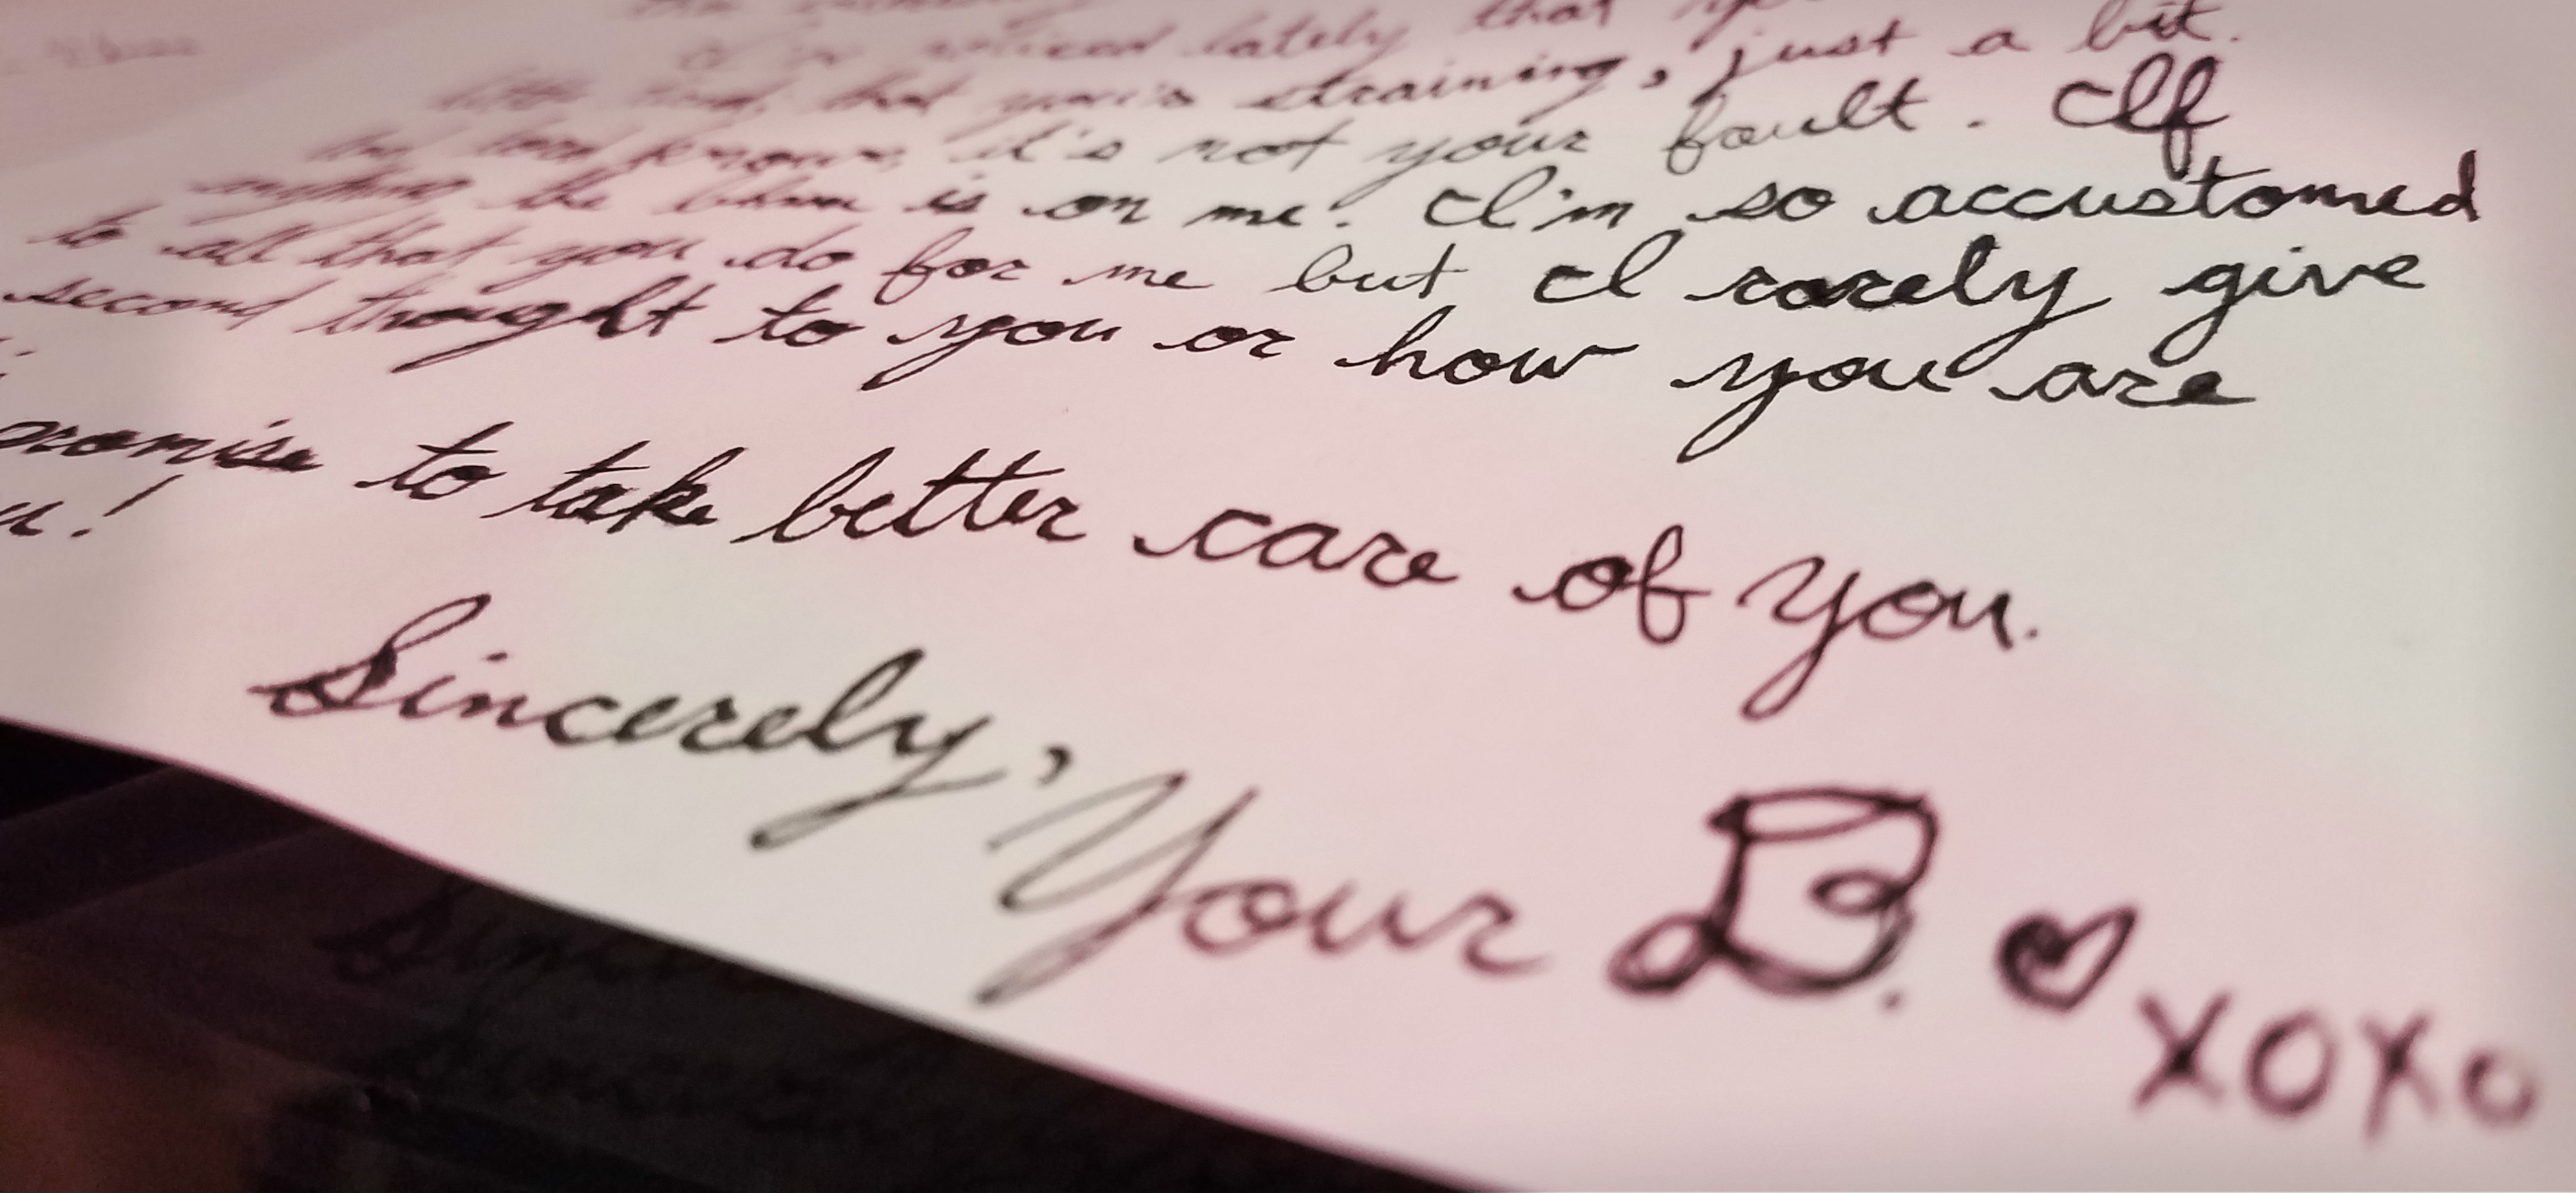 noticed lately that
that you're straining, just a bit.
it's not your fault. If
anything the blame is on me. I'm so accustomed
to all that you do for me but I rarely give
second thought to you or how you are
promise to take better care of you.
!
Sincerely,
Your B. ♥ xoxo